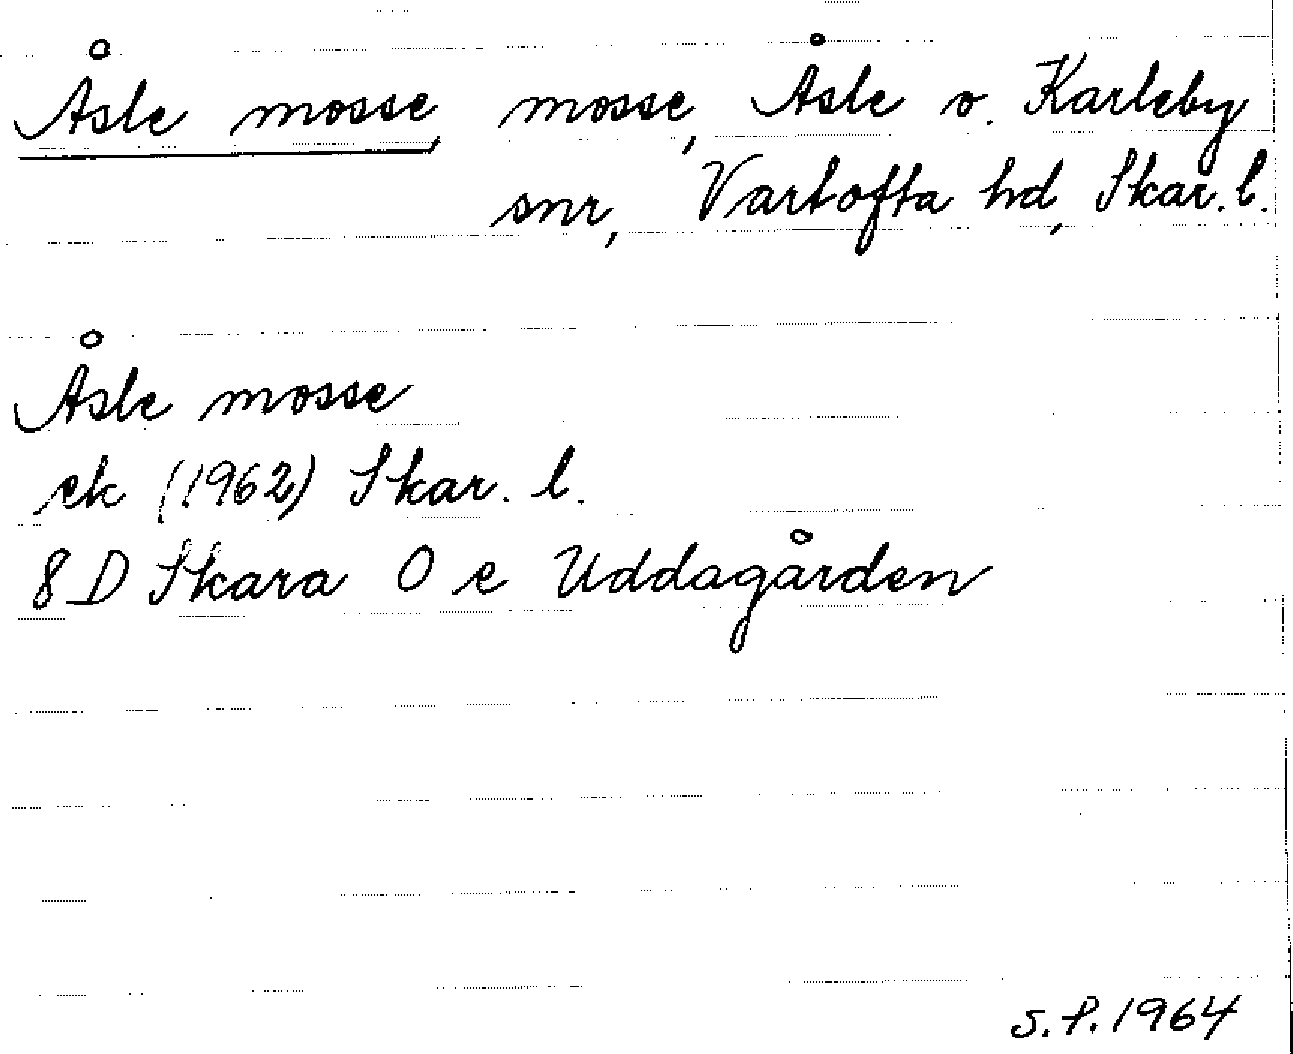 Åsle mosse, mosse, Åsle o. Karleby
snr, Vartofta hd, Skar. l.
Åsle mosse
ek (1962) Skar. l.
8 D Skara O e Uddagården
S.P. 1964